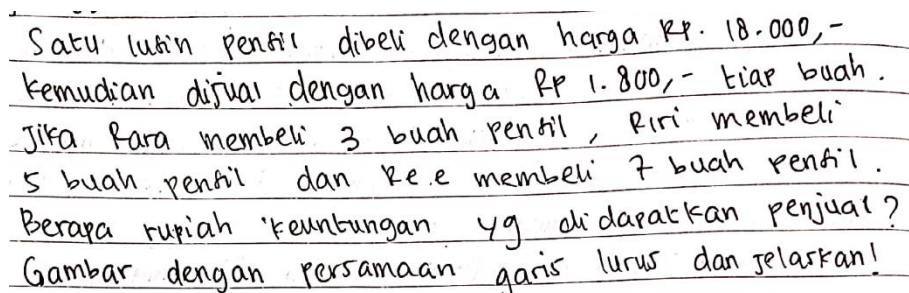 Satu lusin pensil dibeli dengan harga Rp. 18.000,-
kemudian dijual dengan harga Rp 1.800,- tiap buah.
Jika Rara membeli 3 buah pensil, Riri membeli
5 buah pensil dan Re.e membeli 7 buah pensil.
Berapa rupiah keuntungan yg didapatkan penjual?
Gambar dengan persamaan garis lurus dan jelaskan!